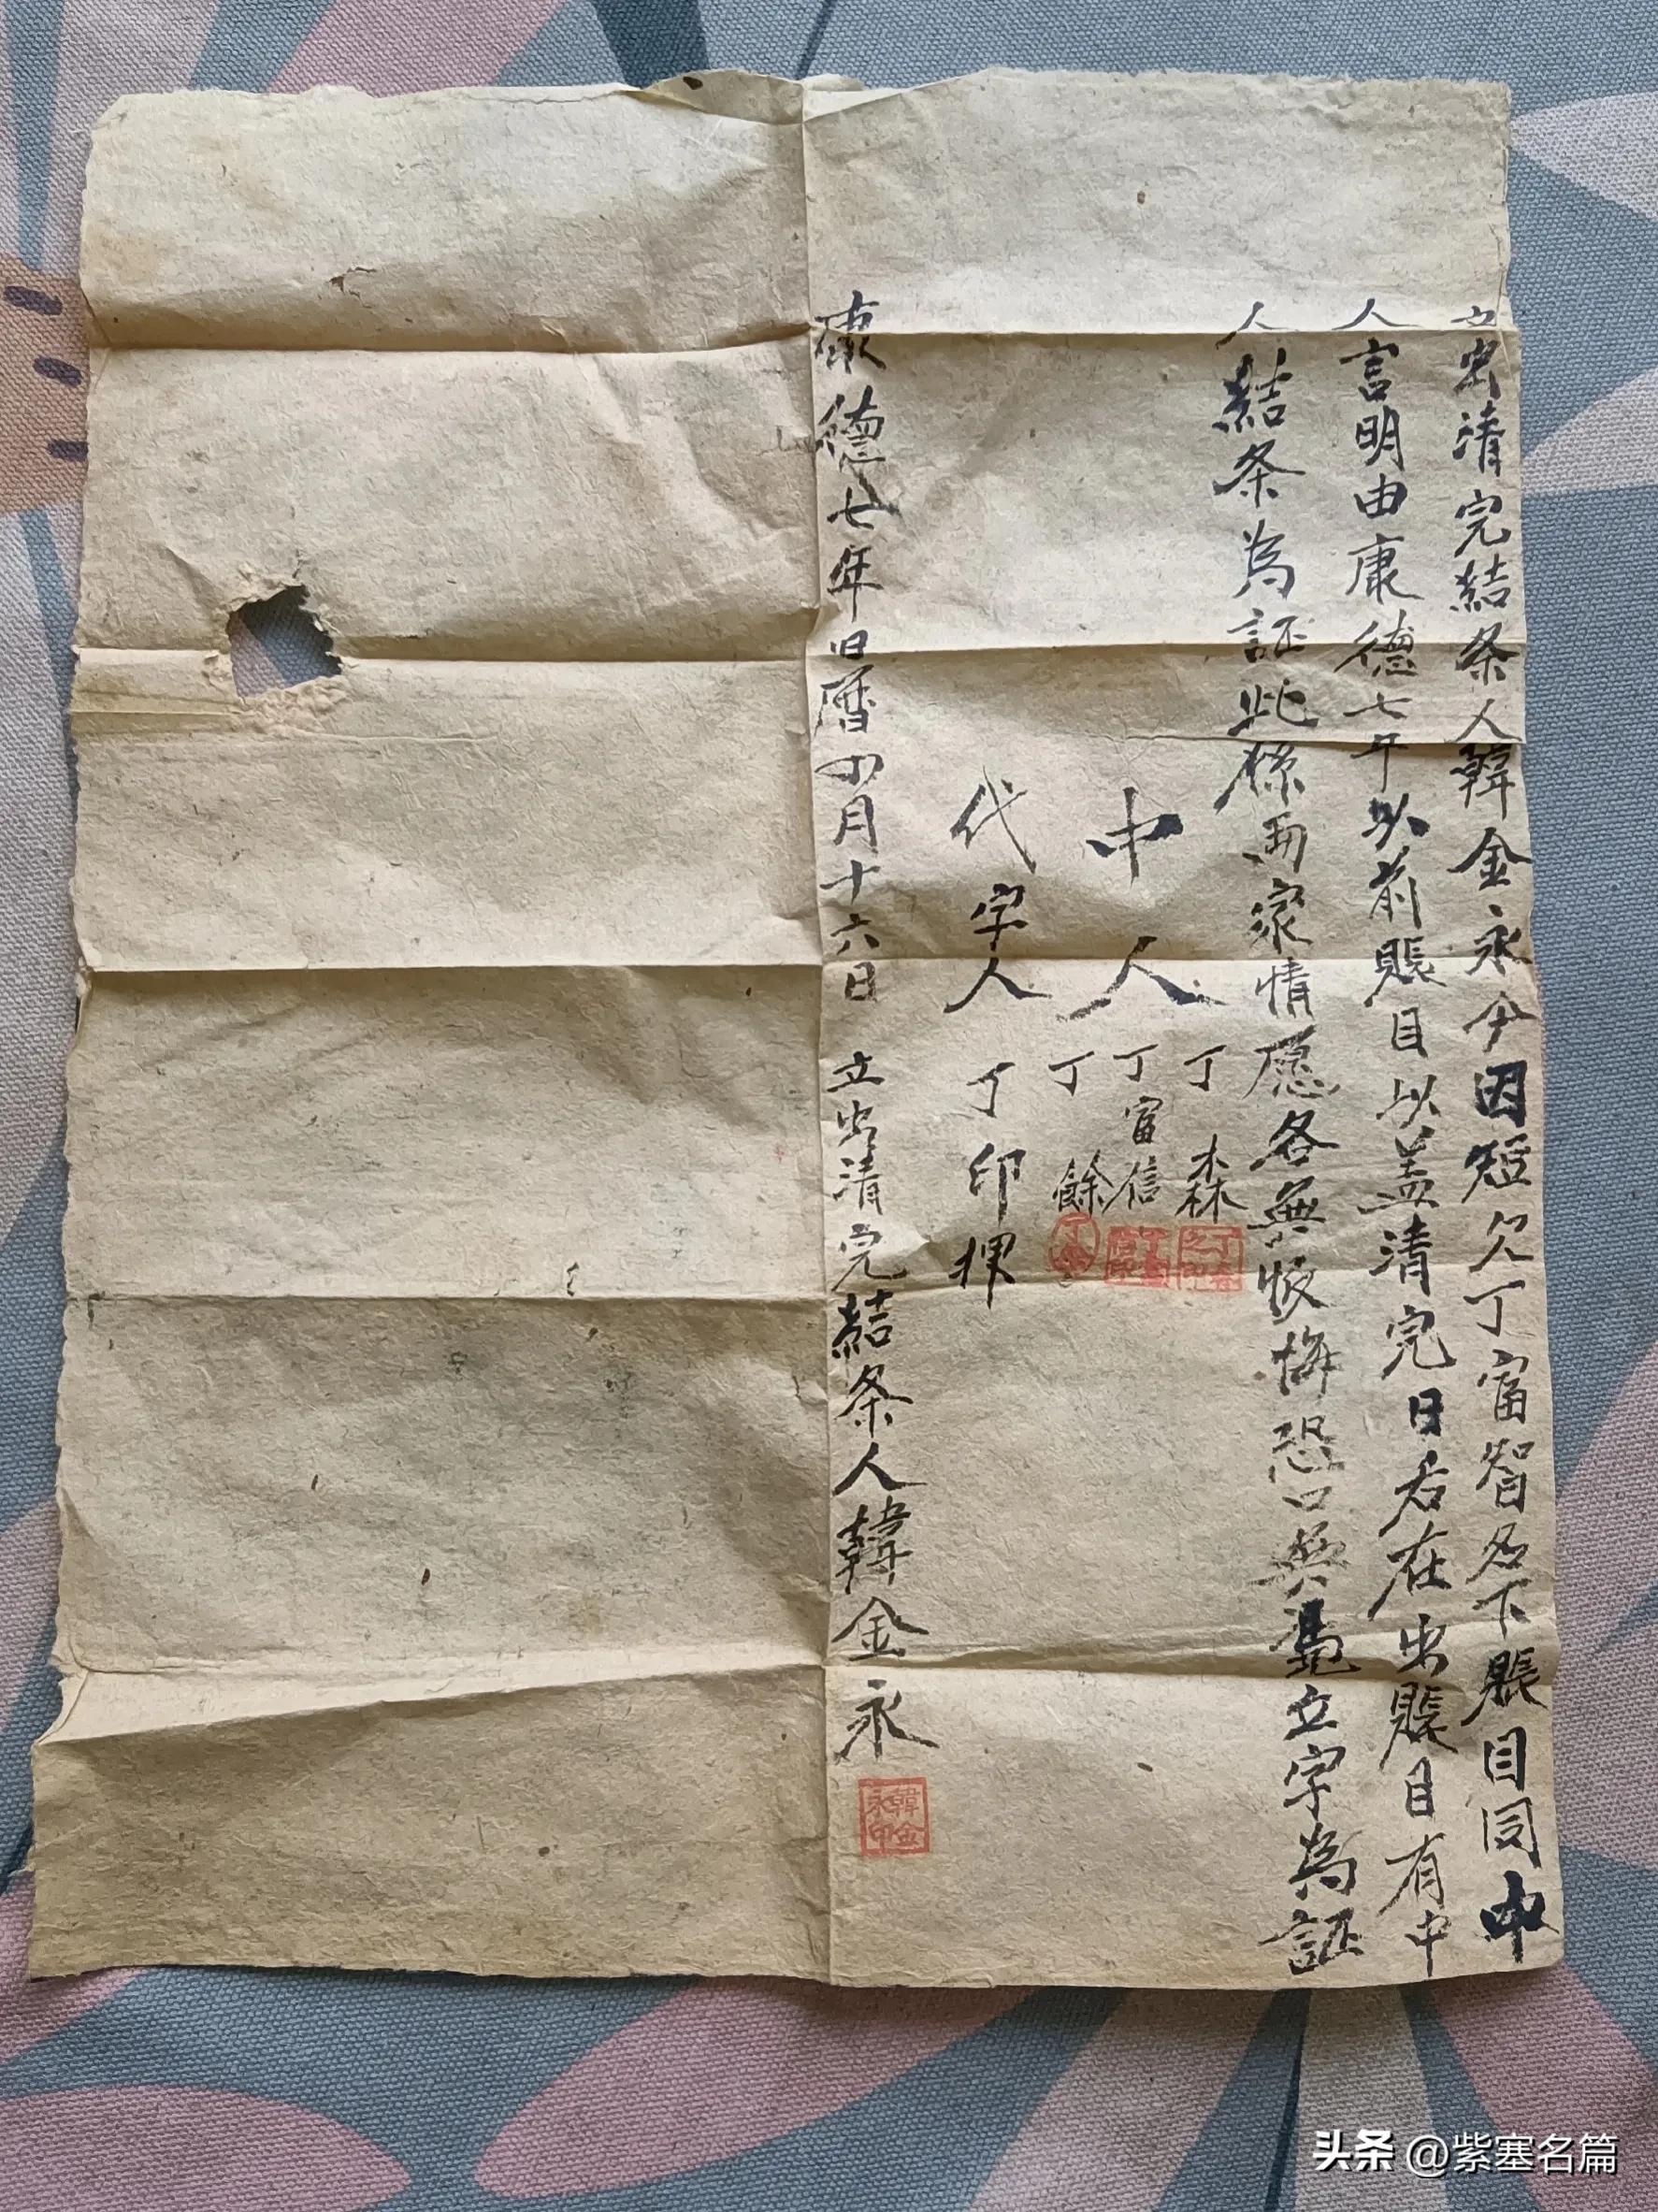 立出清完結条人韓金永今因短欠丁富智名下賬目同中
人言明由康德七年以前賬目以盖清完日后在出賬目有中
人結条為証此係両家情愿各無恢悔恐口無凴立字為証
中人
丁森
丁富信
丁餘
代字人 丁印押
康德七年旧曆四月十六日 立出清完結条人韓金永
韓金永印
头条 @紫塞名篇